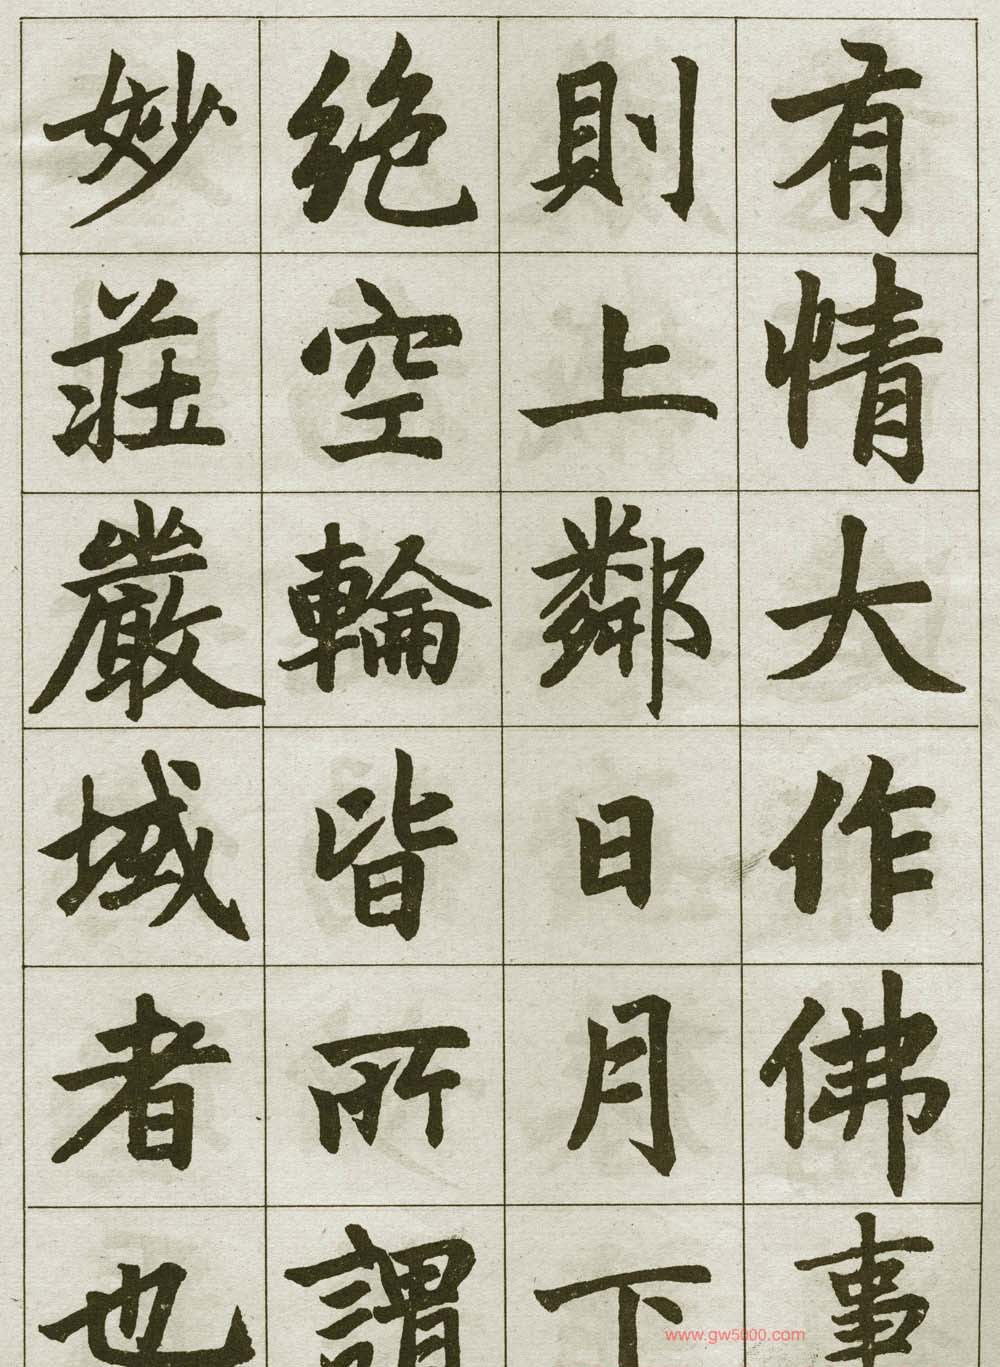 有情大作佛事
則上鄰日月下
絶空輪皆所謂
妙莊嚴域者也
www.gw5000.com